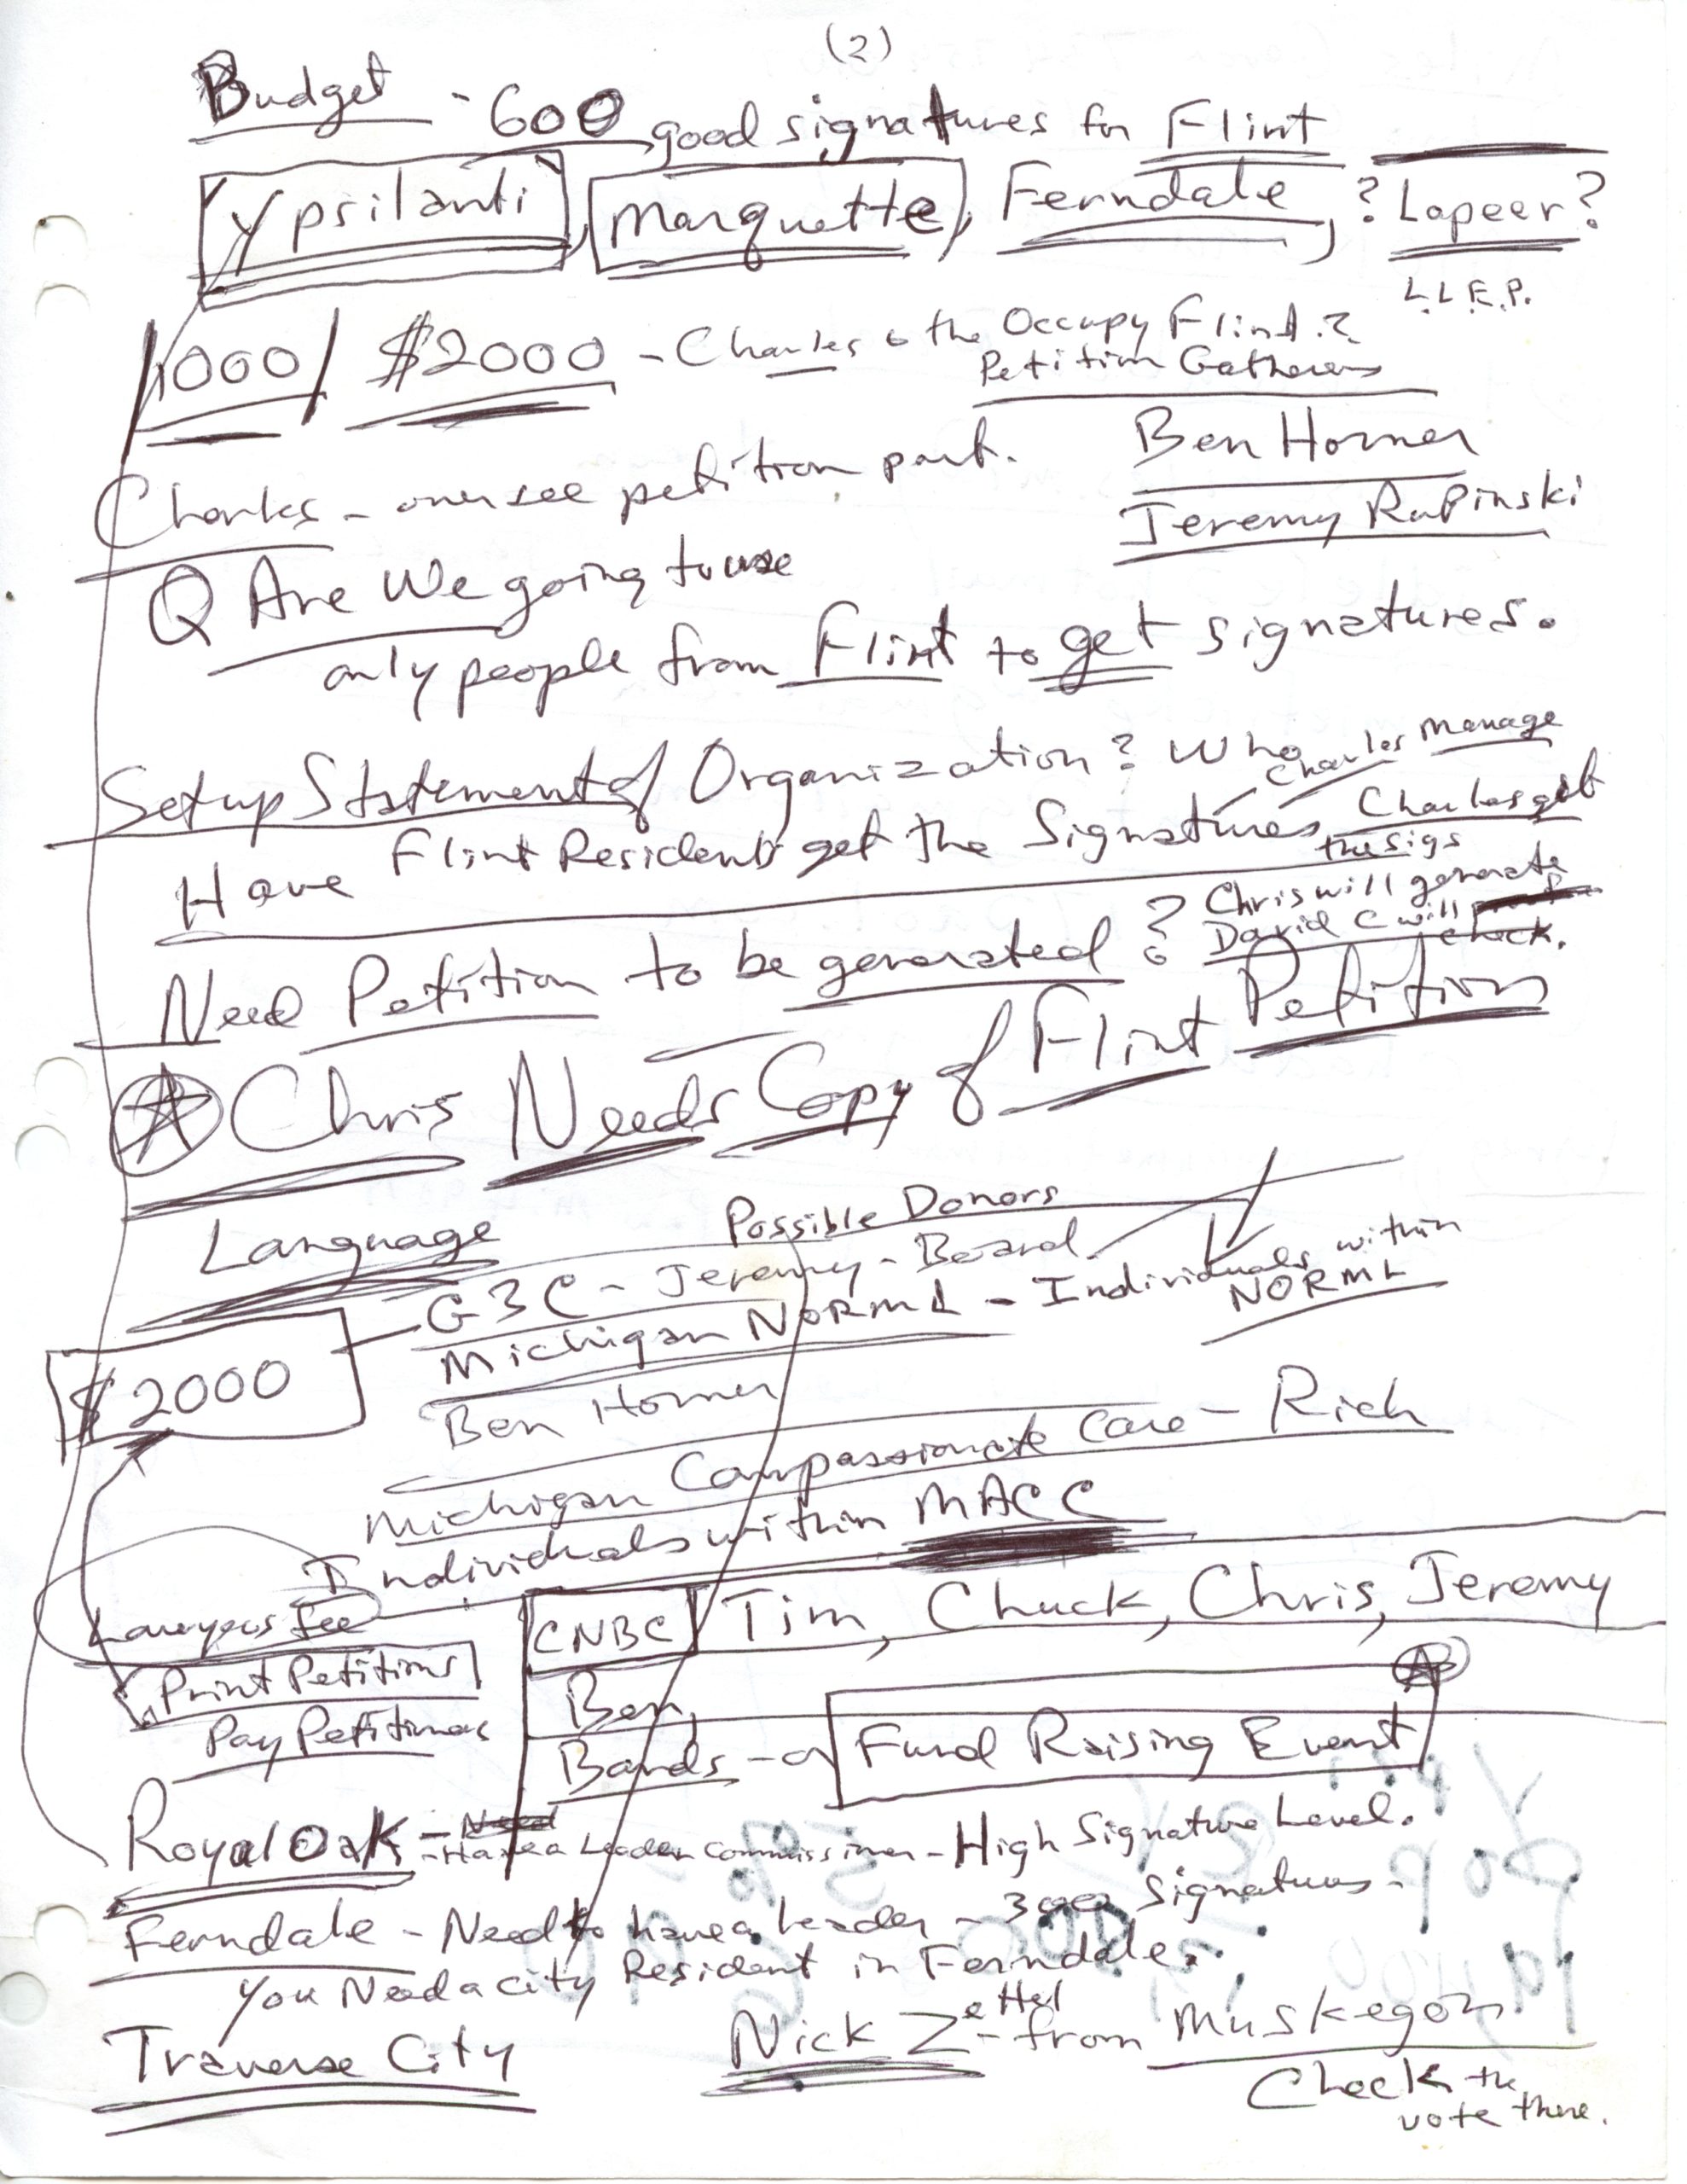 (2)
Budget - 600 good signatures for Flint
Ypsilanti, Marquette, Ferndale, ? Lapeer?
L.L.E.P.
1000/ $2000 - Charles & the Occupy Flint?
Petition Gatherers
Ben Horner
Charles - oversee petition part.
Jeremy Rupinski
Q Are We going to use
only people from Flint to get signatures.
Setup Statement of Organization? Who Charles Manage
Have Flint Residents get the Signatures Charles get
the sigs
Need Petition to be generated? Chris will generate
David C will check.
Chris Needs Copy of Flint Petition
Language
Possible Donors
G3C - Jeremy - Board
Michigan NORML - Individuals within
NORML
$2000
Ben Horner
Michigan Compassionate Care - Rich
Individuals within MACC
Lawyers Fee
CNBC Tim, Chuck, Chris, Jeremy
Print Petitions
Ben,
Pay Petitioners
Bands - Fund Raising Event
Royal Oak - Have a Leader Commissioner - High Signature Level.
Ferndale - Need to have a Leader - Signatures -
You Need a City Resident in Ferndale.
Traverse City
Nick Zettel - from Muskegon
Check the
vote there.